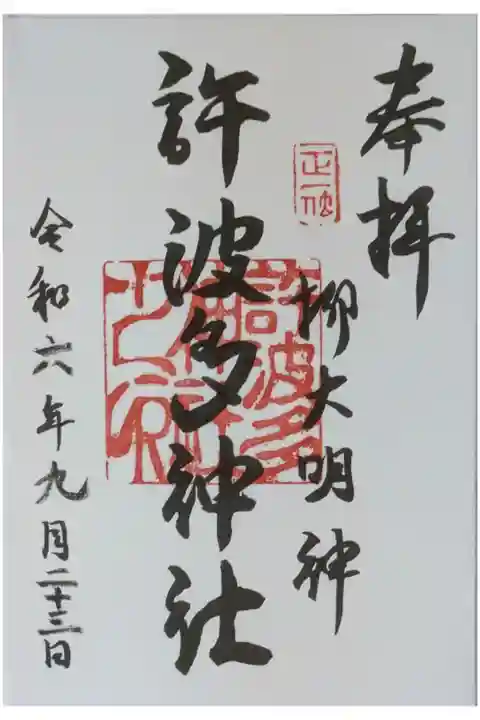 奉拝
正一位
柳大明神
許波多神社
許波多神社之印
令和六年九月二十三日